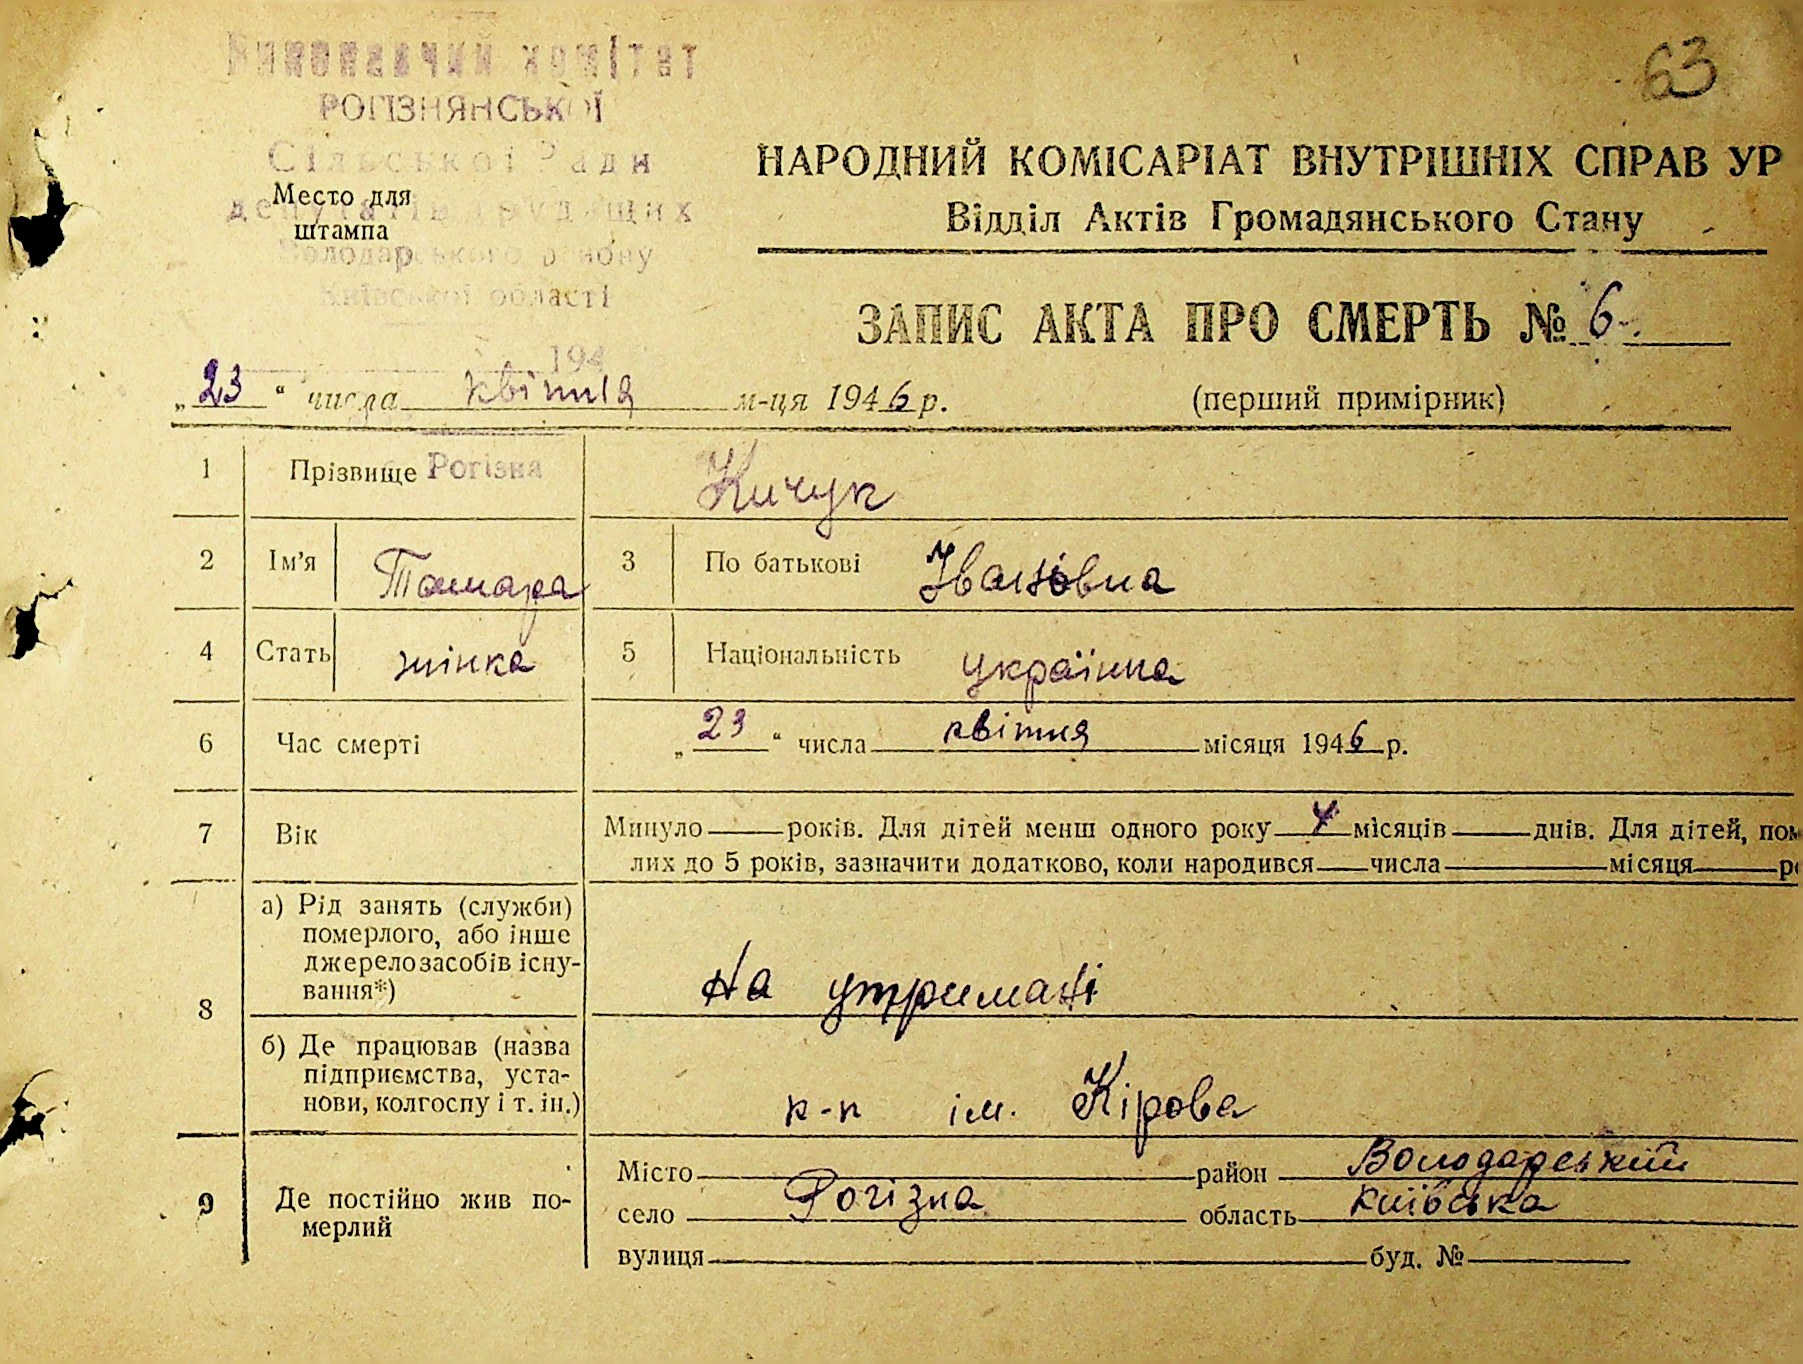 63
Виконавчий комітет
РОГІЗНЯНСЬКОЇ
Сільської Ради
депутатів трудящих
Володарського району
Київської області
194
Рогізна
Место для
штампа
НАРОДНИЙ КОМІСАРІАТ ВНУТРІШНІХ СПРАВ УР
Відділ Актів Громадянського Стану
ЗАПИС АКТА ПРО СМЕРТЬ № 6
„23“ числа квітня м-ця 1946 р.
(перший примірник)
1 Прізвище Кичук
2 Ім'я Тамара 3 По батькові Івановна
4 Стать жінка 5 Національність українка
6 Час смерті „23“ числа квітня місяця 1946 р.
7 Вік Минуло років. Для дітей менш одного року 4 місяців днів. Для дітей, пом
лих до 5 років, зазначити додатково, коли народився числа місяця р
8 а) Рід занять (служби)
померлого, або інше
джерело засобів існу-
вання*)
На утримані
б) Де працював (назва
підприємства, уста-
нови, колгоспу і т. ін.)
к-п ім. Кірова
9 Де постійно жив по-
мерлий
Місто район Володарський
село Рогізна область київська
вулиця буд. №